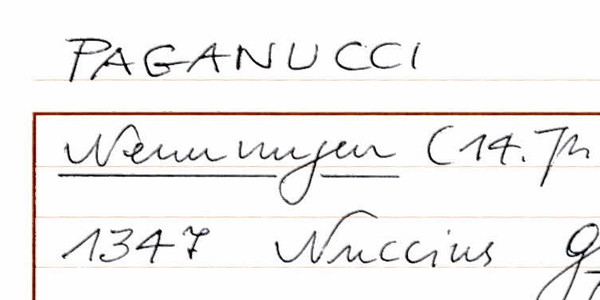 PAGANUCCI
Nennungen (14. Jh
1347 Nuccius